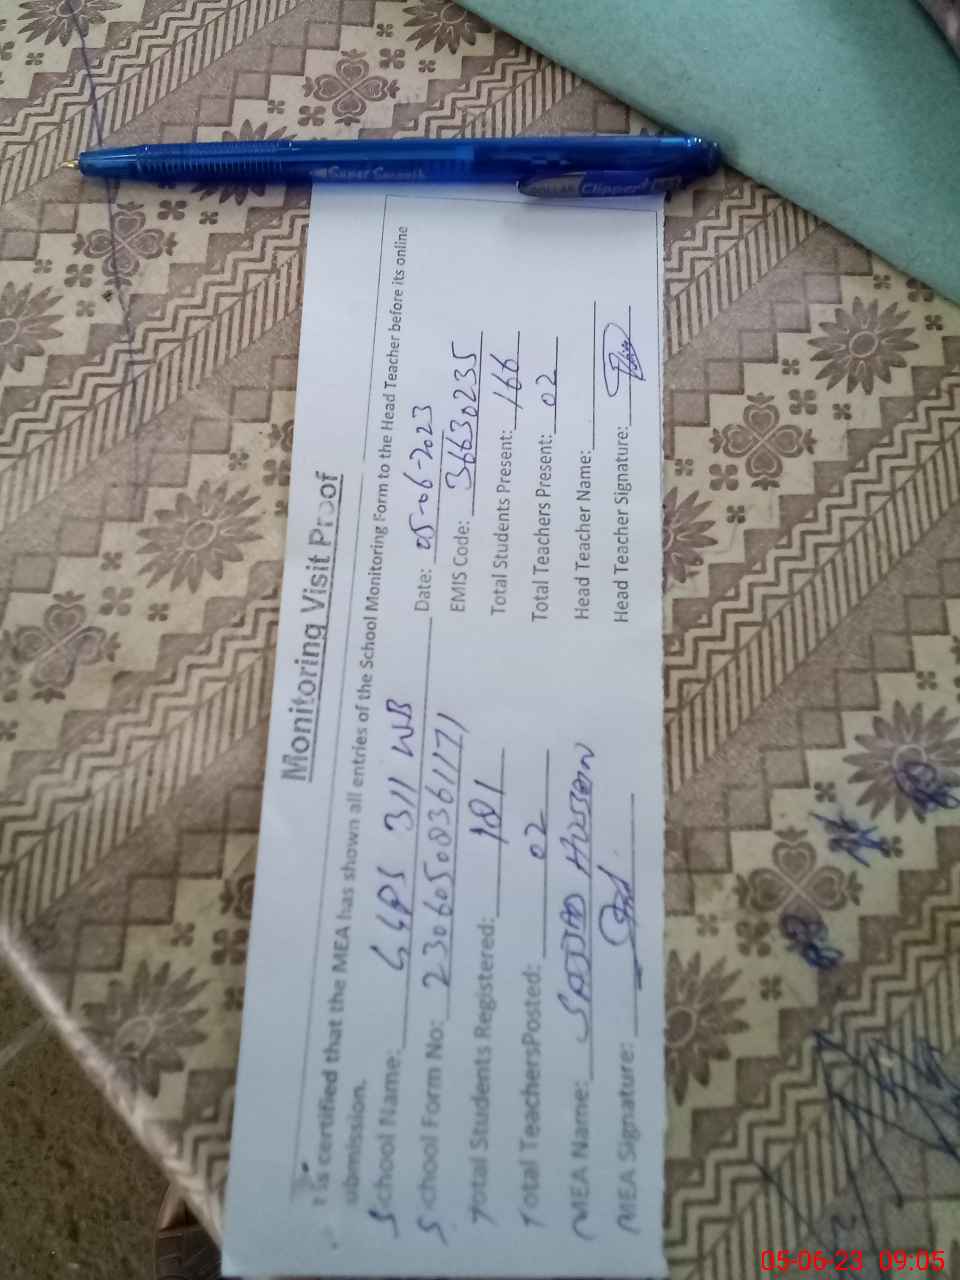 Monitoring Visit Proof
T is certified that the MEA has shown all entries of the School Monitoring Form to the Head Teacher before its online
ubmission.
School Name: GGPS 311 WB Date: 05-06-2023
School Form No: 23060508361171 EMIS Code: 36630235
Total Students Registered: 181 Total Students Present: 166
Total TeachersPosted: 02 Total Teachers Present: 02
MEA Name: SAJJAD HUSSAIN Head Teacher Name:
MEA Signature: Head Teacher Signature:
Super Smooth
DOLLAR Clipper
05-06-23 09:05